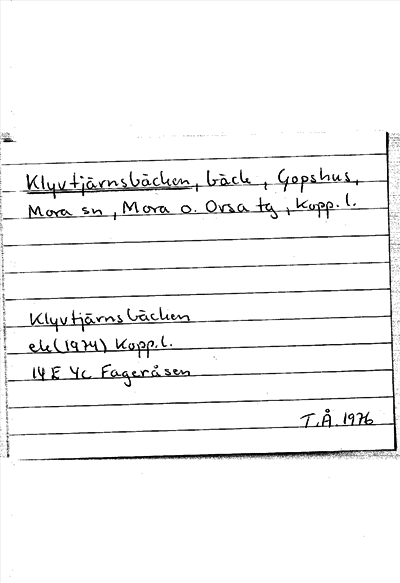 Klyvtjärnsbäcken, bäck, Gopshus,
Mora sn, Mora o. Orsa tg, Kopp.l.
Klyvtjärnsbäcken
ek(1974) Kopp.l.
14E 4c Fageråsen
T.Å. 1976